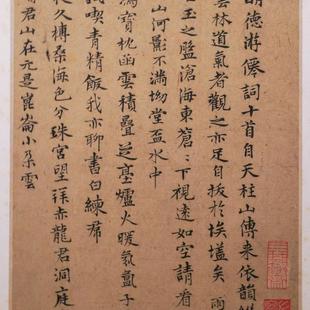 德游僊詞十首自天柱山傳来依韻
雲林道氣者觀之亦足自拔於埃壒矣 雨
玉之盤滄海東蒼〻下視遠如空請看
山河影不滿坳堂盃水中
寶枕函雲積疊芝臺爐火暖氤氳子
喫青精飯我亦聊書白練帬
久榑桑海色分珠宮望赤龍君洞庭
君山在元是崑崙小朵雲